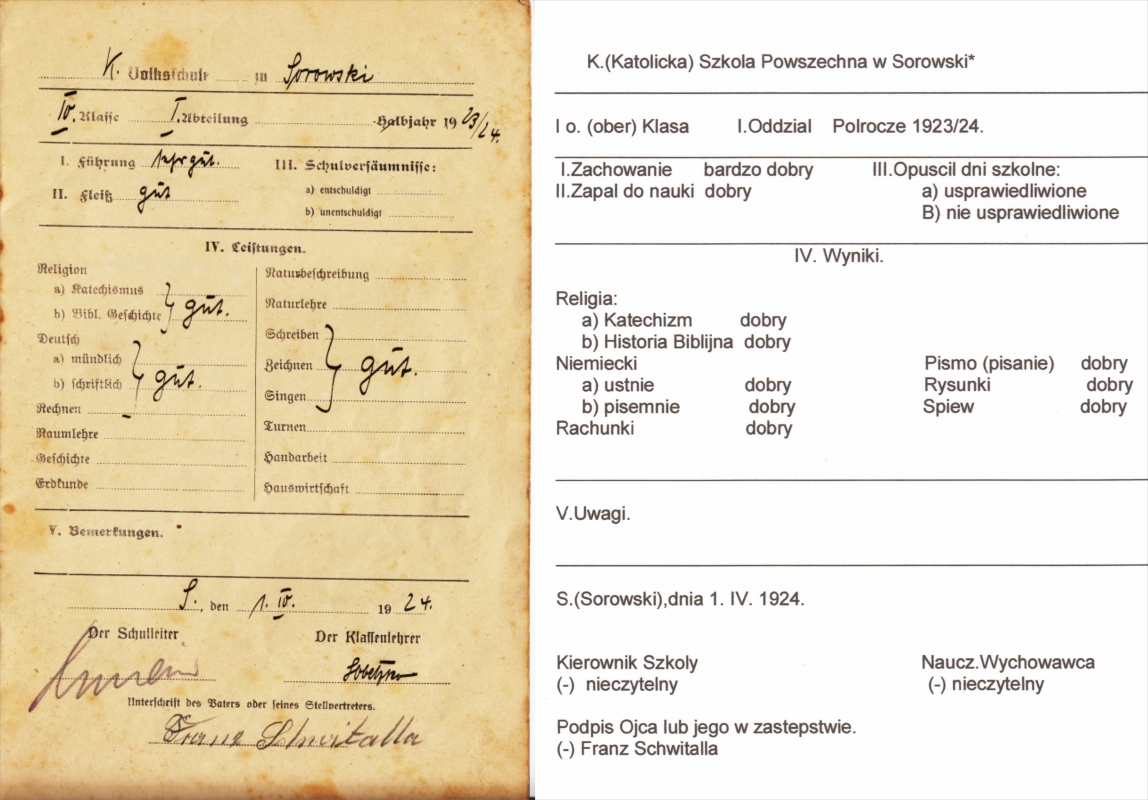 K. Volksschule zu Sorowski
IV. Klasse I. Abteilung Halbjahr 1923/24.
I. Führung sehr gut.
II. Fleiß gut
III. Schulversäumnisse:
a) entschuldigt
b) unentschuldigt
IV. Leistungen.
Religion
a) Katechismus
b) Bibl. Geschichte } gut.
Deutsch
a) mündlich
b) schriftlich } gut.
Rechnen
Raumlehre
Geschichte
Erdkunde
Naturbeschreibung
Naturlehre
Schreiben
Zeichnen } gut.
Singen
Turnen
Handarbeit
Hauswirtschaft
V. Bemerkungen.
S., den 1. IV. 1924.
Der Schulleiter Der Klassenlehrer
Unterschrift des Vaters oder seines Stellvertreters.
Franz Schwitalla
K.(Katolicka) Szkola Powszechna w Sorowski*
I o. (ober) Klasa I.Oddzial Polrocze 1923/24.
I.Zachowanie bardzo dobry
II.Zapal do nauki dobry
III.Opuscil dni szkolne:
a) usprawiedliwione
B) nie usprawiedliwione
IV. Wyniki.
Religia:
a) Katechizm dobry
b) Historia Biblijna dobry
Niemiecki
a) ustnie dobry
b) pisemnie dobry
Rachunki dobry
Pismo (pisanie) dobry
Rysunki dobry
Spiew dobry
V.Uwagi.
S.(Sorowski),dnia 1. IV. 1924.
Kierownik Szkoly Naucz.Wychowawca
(-) nieczytelny (-) nieczytelny
Podpis Ojca lub jego w zastepstwie.
(-) Franz Schwitalla